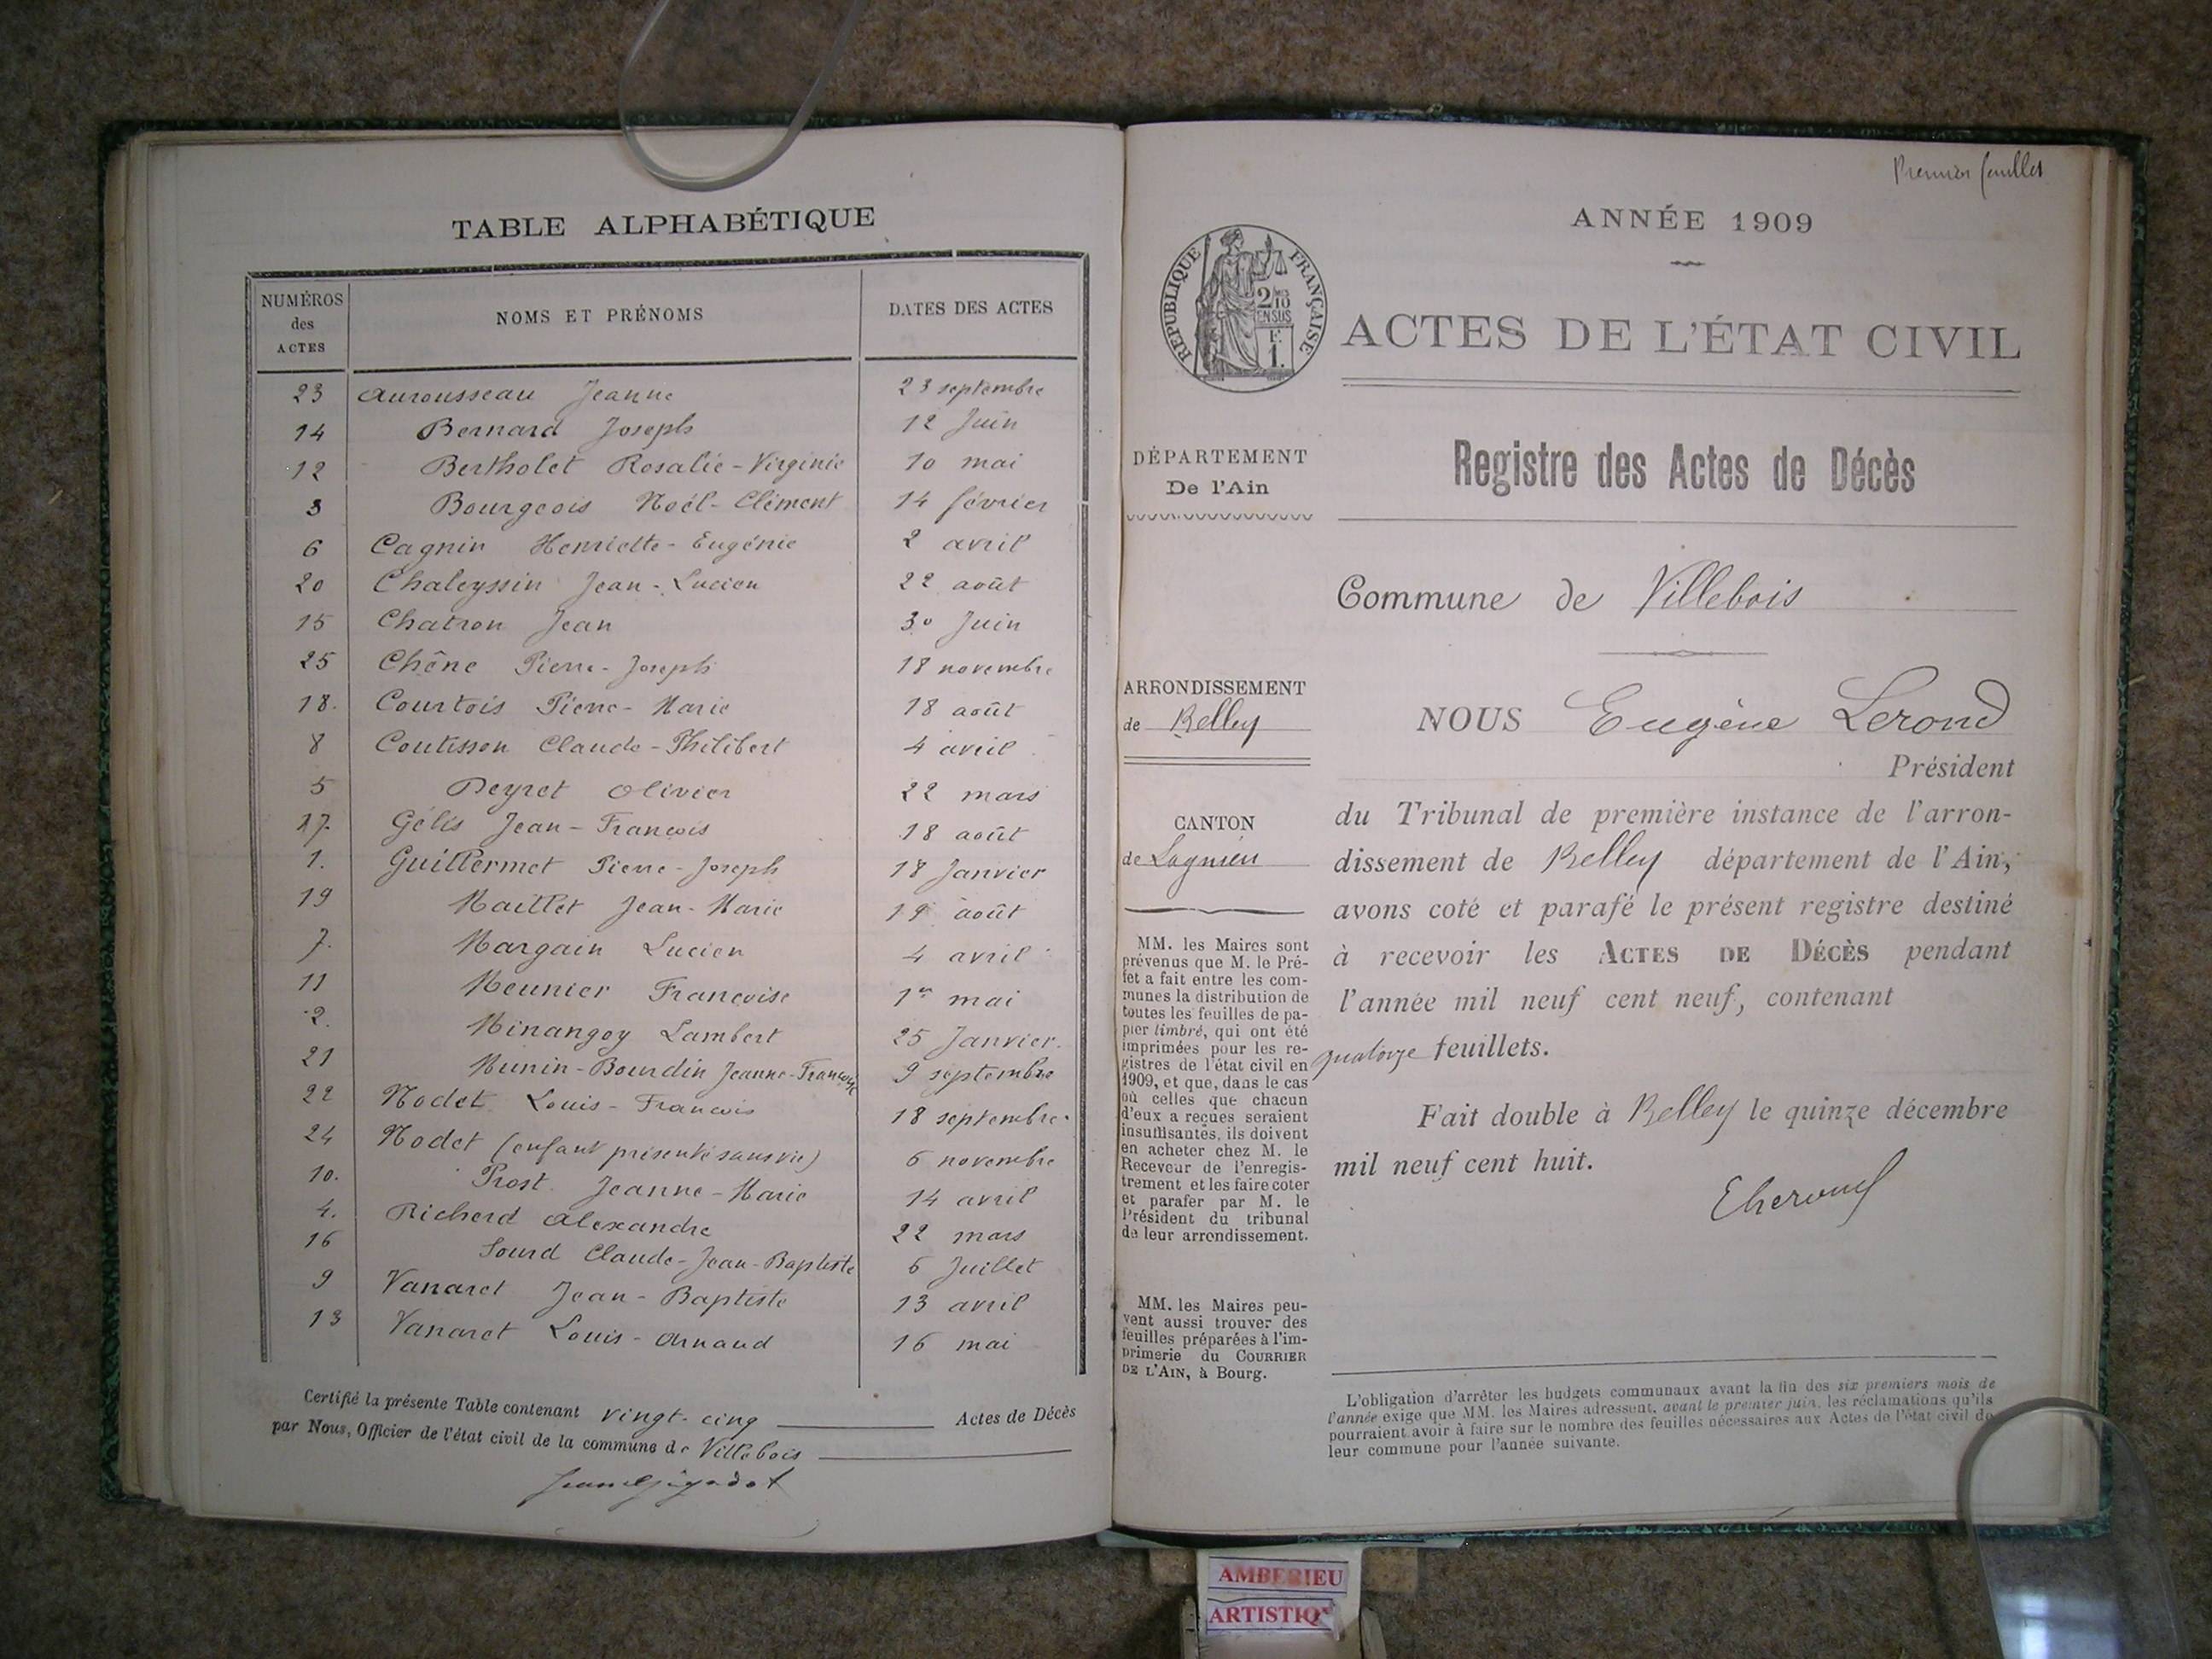 TABLE ALPHABÉTIQUE
NUMÉROS des ACTES NOMS ET PRÉNOMS DATES DES ACTES
23 Aurousseau Jeanne 23 septembre
14 Bernard Joseph 12 Juin
12 Bertholet Rosalie-Virginie 10 mai
3 Bourgeois Noël-Clément 14 février
6 Cagnin Henriette-Eugénie 2 avril
20 Chaleyssin Jean-Lucien 22 août
15 Chatron Jean 30 Juin
25 Chêne Pierre-Joseph 18 novembre
18. Courtois Pierre-Marie 18 août
8 Coutisson Claude-Philibert 4 avril
5 Deyret Olivier 22 mars
17. Gélis Jean-François 18 août
1. Guillermet Pierre-Joseph 18 Janvier
19 Maillet Jean-Marie 19 août
7. Margain Lucien 4 avril
11 Meunier Françoise 1er mai
2. Minangoy Lambert 25 Janvier.
21 Munin-Bourdin Jeanne-Françoise 9 septembre
22 Nodet Louis-François 18 septembre
24 Nodet (enfant présenté sans vie) 6 novembre
10. Prost Jeanne-Marie 14 avril
4. Richerd Alexandre 22 mars
16 Sourd Claude-Jean-Baptiste 6 Juillet
9 Vanaret Jean-Baptiste 13 avril
13 Vanaret Louis-Arnaud 16 mai
Certifié la présente Table contenant vingt-cinq Actes de Décès
par Nous, Officier de l'état civil de la commune de Villebois
Premier feuillet
ANNÉE 1909
RÉPUBLIQUE FRANÇAISE
2/10 EN SUS
1.
ACTES DE L'ÉTAT CIVIL
DÉPARTEMENT
De l'Ain
Registre des Actes de Décès
Commune de Villebois
ARRONDISSEMENT
de Belley
NOUS Eugène Lerond
Président
CANTON
de Lagnieu
du Tribunal de première instance de l'arron-
dissement de Belley département de l'Ain,
avons coté et parafé le présent registre destiné
à recevoir les ACTES DE DÉCÈS pendant
l'année mil neuf cent neuf, contenant
quatorze feuillets.
Fait double à Belley le quinze décembre
mil neuf cent huit.
MM. les Maires sont
prévenus que M. le Pré-
fet a fait entre les com-
munes la distribution de
toutes les feuilles de pa-
pier timbré, qui ont été
imprimées pour les re-
gistres de l'état civil en
1909, et que, dans le cas
où celles que chacun
d'eux a reçues seraient
insuffisantes, ils doivent
en acheter chez M. le
Receveur de l'enregis-
trement et les faire coter
et parafer par M. le
Président du tribunal
de leur arrondissement.
MM. les Maires peu-
vent aussi trouver des
feuilles préparées à l'im-
primerie du COURRIER
DE L'AIN, à Bourg.
L'obligation d'arrêter les budgets communaux avant la fin des six premiers mois de
l'année exige que MM. les Maires adressent, avant le premier juin, les réclamations qu'ils
pourraient avoir à faire sur le nombre des feuilles nécessaires aux Actes de l'état civil de
leur commune pour l'année suivante.
AMBERIEU
ARTISTIQ